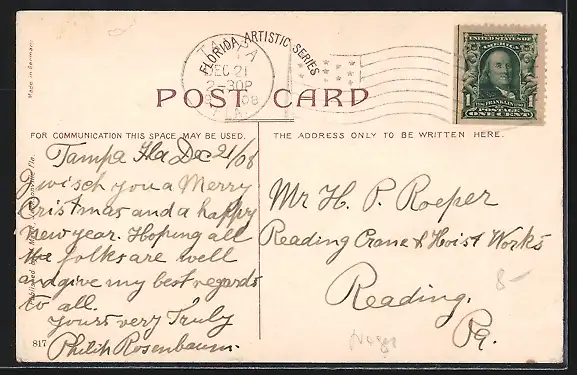 FLORIDA ARTISTIC SERIES
TAMPA
DEC 21
2-30P
POST CARD
UNITED STATES OF
AMERICA
1 FRANKLIN 1
ONE CENT
Made in Germany
FOR COMMUNICATION THIS SPACE MAY BE USED.
THE ADDRESS ONLY TO BE WRITTEN HERE.
Tampa Fla Dec 21/08
I wisch you a Merry
Cristmas and a happy
New year. Hoping all
the folks are well
and give my best regards
to all.
Yours very Truly
Philip Rosenbaum.
817
Published by
Mr H. P. Roeper
Reading Crane & Hoist Works
Reading.
Pa.
8-